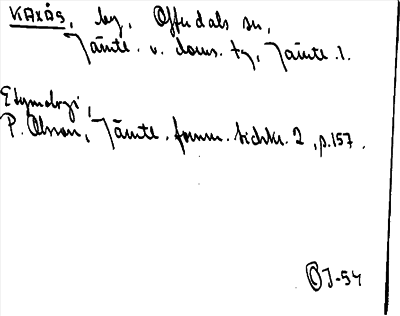 KAXÅS, by, Offerdals sn,
Jämtl. v. doms. tg, Jämtl. l.
Etymologi,
P. Olsson, Jämtl. fornm. tidskr. 2, p.157.
OJ-54